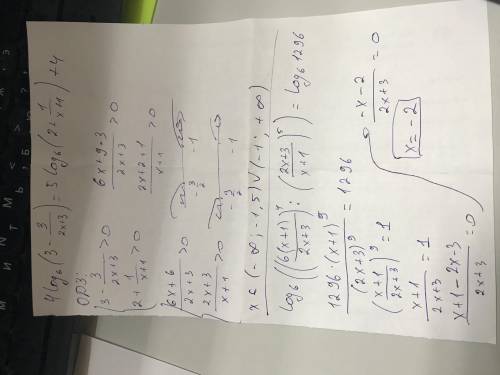 4log₆(3 - 3/(2x+3)) = 5log₆(2 + 1/(x+1)) + 4
ОДЗ:
{3 - 3/(2x+3) > 0
{2 + 1/(x+1) > 0
(6x+9-3)/(2x+3) > 0
(2x+2+1)/(x+1) > 0
{(6x+6)/(2x+3) > 0
{(2x+3)/(x+1) > 0
-3/2 -1
-3/2 -1
x ∈ (-∞; -1,5) ∪ (-1; +∞)
log₆((6(x+1)/(2x+3))⁴ : ((2x+3)/(x+1))⁵) = log₆1296
1296·(x+1)⁹/(2x+3)⁹ = 1296
((x+1)/(2x+3))⁹ = 1
(x+1)/(2x+3) = 1
(x+1-2x-3)/(2x+3) = 0
(-x-2)/(2x+3) = 0
x = -2